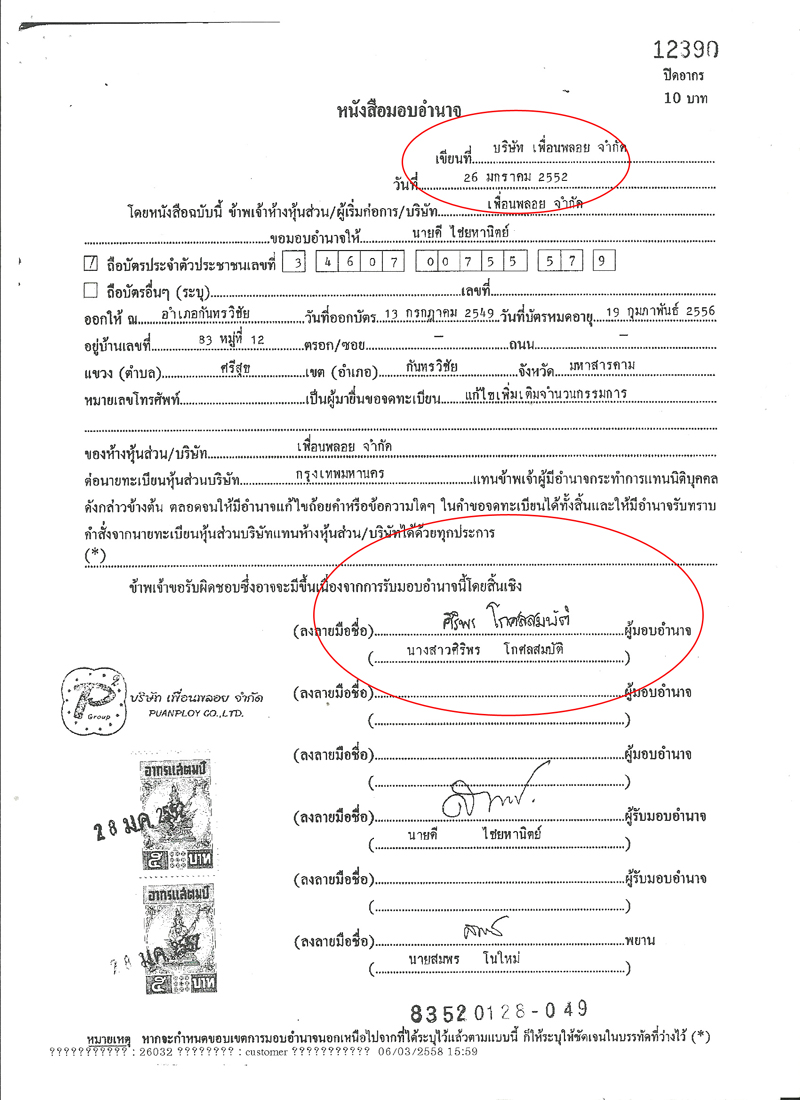 12390
ปิดอากร
10 บาท
หนังสือมอบอำนาจ
เขียนที่ บริษัท เพื่อนพลอย จำกัด
วันที่ 26 มกราคม 2552
โดยหนังสือฉบับนี้ ข้าพเจ้าห้างหุ้นส่วน/ผู้เริ่มก่อการ/บริษัท เพื่อนพลอย จำกัด
ขอมอบอำนาจให้ นายดี ไชยหานิตย์
☑ ถือบัตรประจำตัวประชาชนเลขที่ 3 4607 00755 57 9
☐ ถือบัตรอื่นๆ (ระบุ) เลขที่
ออกให้ ณ อำเภอกันทรวิชัย วันที่ออกบัตร 13 กรกฎาคม 2549 วันที่บัตรหมดอายุ 19 กุมภาพันธ์ 2556
อยู่บ้านเลขที่ 83 หมู่ที่ 12 ตรอก/ซอย - ถนน -
แขวง (ตำบล) ศรีสุข เขต (อำเภอ) กันทรวิชัย จังหวัด มหาสารคาม
หมายเลขโทรศัพท์ เป็นผู้มายื่นขอจดทะเบียน แก้ไขเพิ่มเติมจำนวนกรรมการ
ของห้างหุ้นส่วน/บริษัท เพื่อนพลอย จำกัด
ต่อนายทะเบียนหุ้นส่วนบริษัท กรุงเทพมหานคร แทนข้าพเจ้าผู้มีอำนาจกระทำการแทนนิติบุคคล
ดังกล่าวข้างต้น ตลอดจนให้มีอำนาจแก้ไขถ้อยคำหรือข้อความใดๆ ในคำขอจดทะเบียนได้ทั้งสิ้นและให้มีอำนาจรับทราบ
คำสั่งจากนายทะเบียนหุ้นส่วนบริษัทแทนห้างหุ้นส่วน/บริษัทได้ด้วยทุกประการ
(*)
ข้าพเจ้าขอรับผิดชอบซึ่งอาจจะมีขึ้นเนื่องจากการรับมอบอำนาจนี้โดยสิ้นเชิง
(ลงลายมือชื่อ) ศิริพร โกศลสมบัติ ผู้มอบอำนาจ
(นางสาวศิริพร โกศลสมบัติ)
(ลงลายมือชื่อ) ผู้มอบอำนาจ
( )
Group
บริษัท เพื่อนพลอย จำกัด
PUANPLOY CO.,LTD.
(ลงลายมือชื่อ) ผู้มอบอำนาจ
( )
(ลงลายมือชื่อ) ผู้รับมอบอำนาจ
(นายดี ไชยหานิตย์)
(ลงลายมือชื่อ) ผู้รับมอบอำนาจ
( )
(ลงลายมือชื่อ) พยาน
(นายสมพร โนใหม่)
อากรแสตมป์
28 ม.ค. 2552
๕ บาท
อากรแสตมป์
28 ม.ค. 2552
๕ บาท
83520128-049
หมายเหตุ หากจะกำหนดขอบเขตการมอบอำนาจนอกเหนือไปจากที่ได้ระบุไว้แล้วตามแบบนี้ ก็ให้ระบุให้ชัดเจนในบรรทัดที่ว่างไว้ (*)
??????????? : 26032 ???????? : customer ??????????? 06/03/2558 15:59